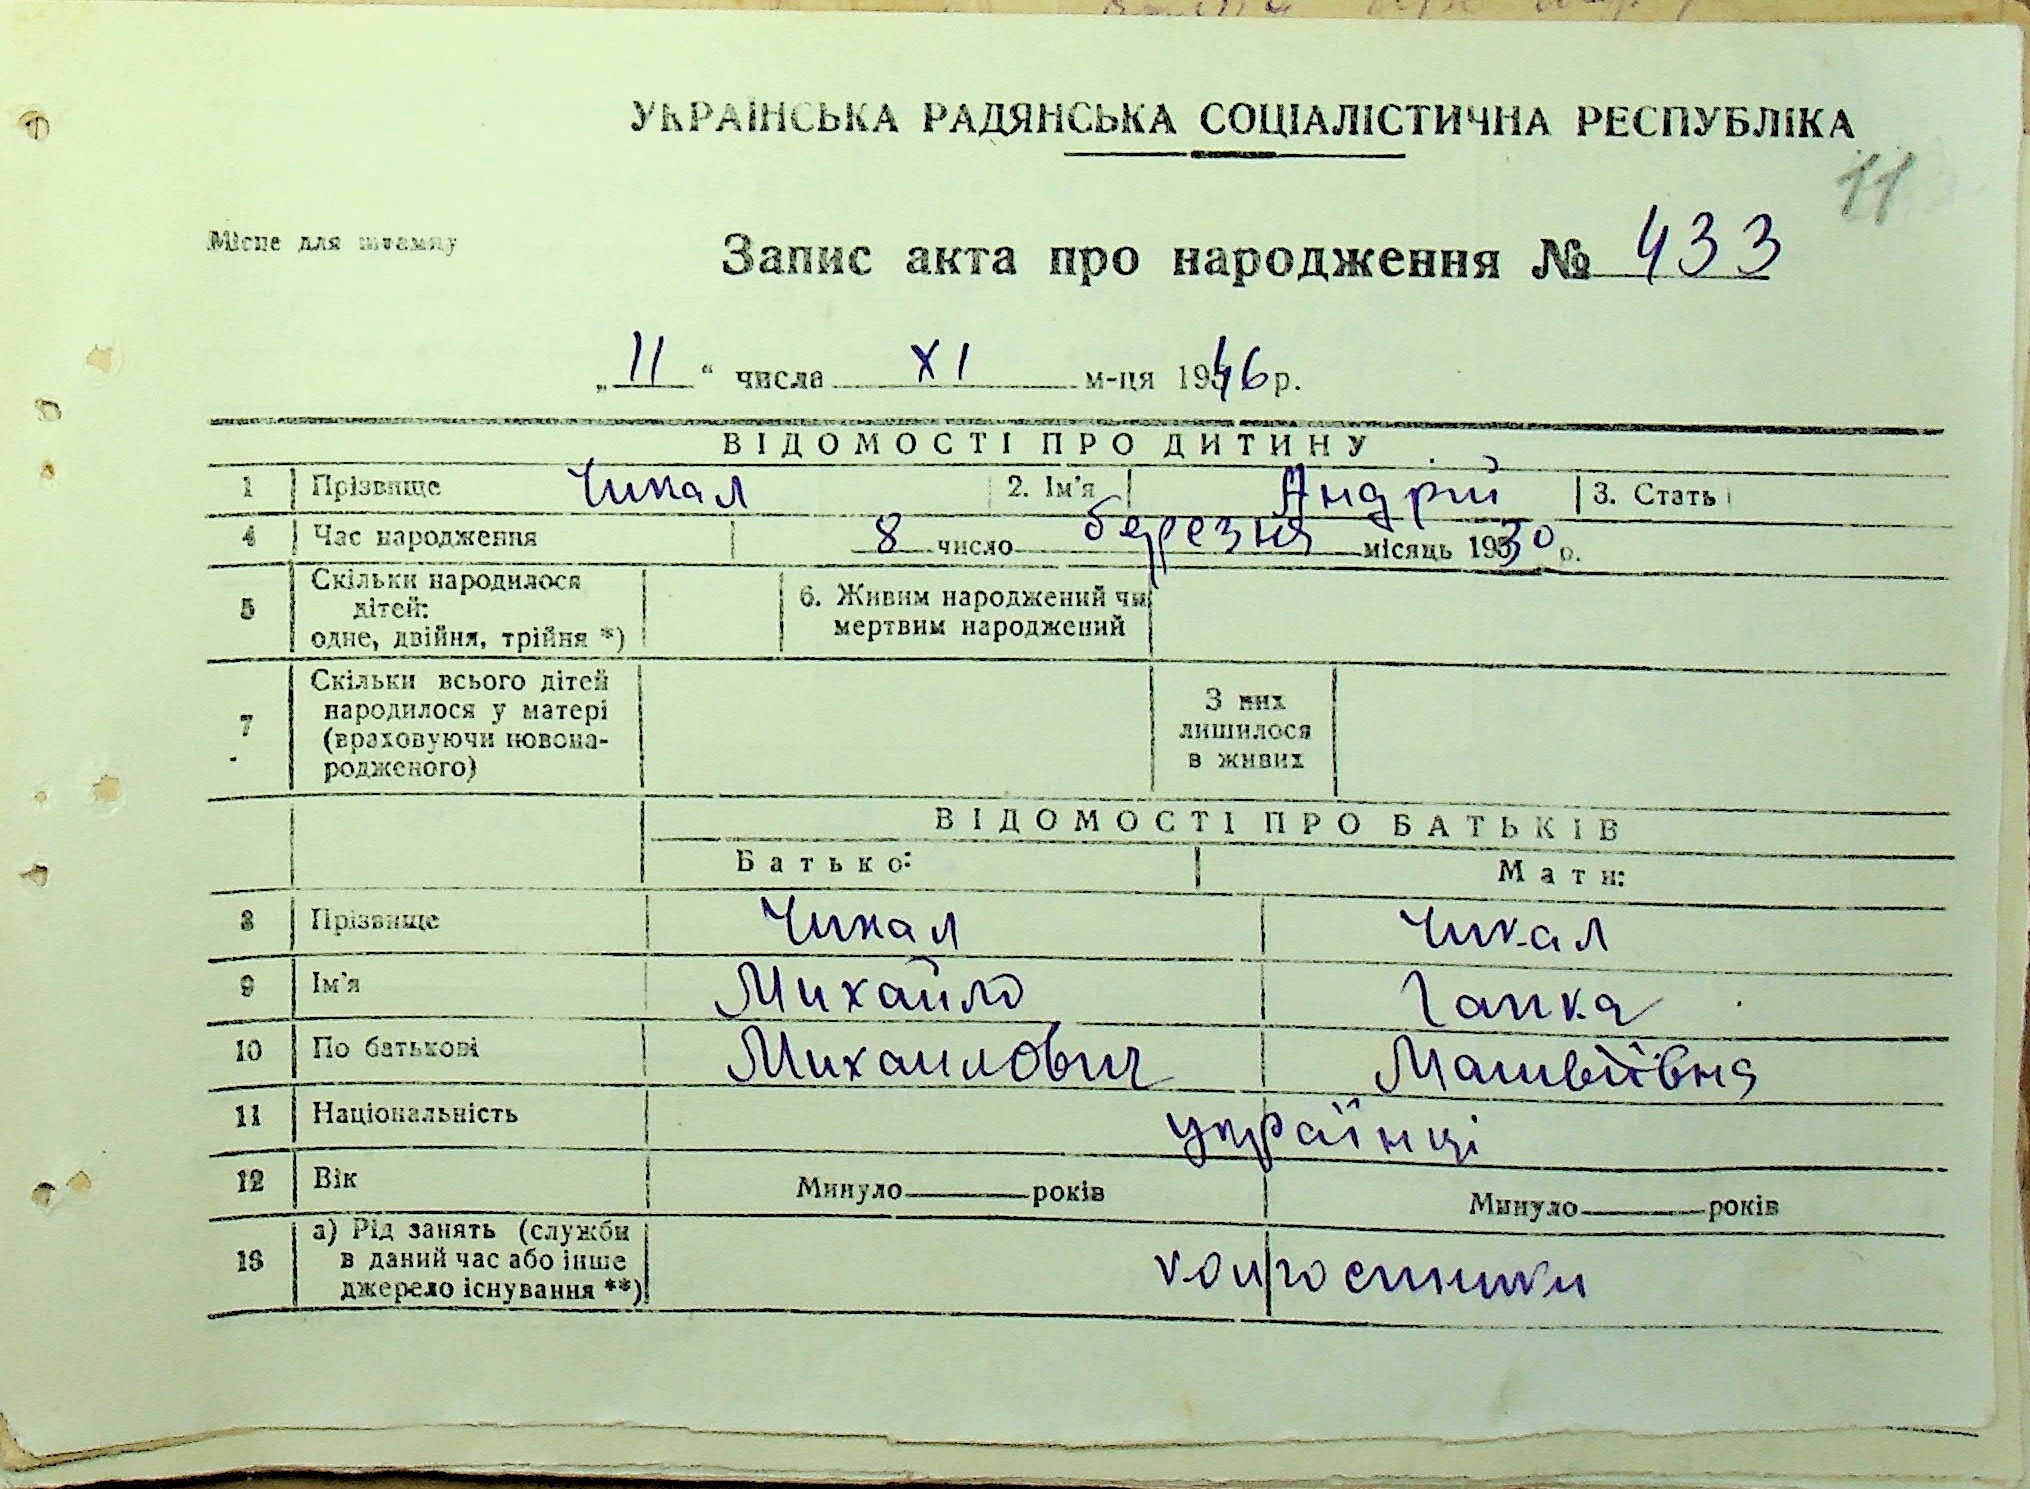 УКРАЇНСЬКА РАДЯНСЬКА СОЦІАЛІСТИЧНА РЕСПУБЛІКА
11
Місце для штампу
Запис акта про народження № 433
„ 11 “ числа XI м-ця 1946 р.
ВІДОМОСТІ ПРО ДИТИНУ
1 Прізвище Чикал 2. Ім'я Андрій 3. Стать
4 Час народження 8 число березня місяць 1930 р.
5 Скільки народилося дітей: одне, двійня, трійня *) 6. Живим народжений чи мертвим народжений
7 Скільки всього дітей народилося у матері (враховуючи новонародженого) З них лишилося в живих
ВІДОМОСТІ ПРО БАТЬКІВ
Батько: Мати:
8 Прізвище Чикал Чикал
9 Ім'я Михайло Гапка
10 По батькові Михайлович Матвіївна
11 Національність українці
12 Вік Минуло роки Минуло років
13 а) Рід занять (служби в даний час або інше джерело існування **) колгоспники